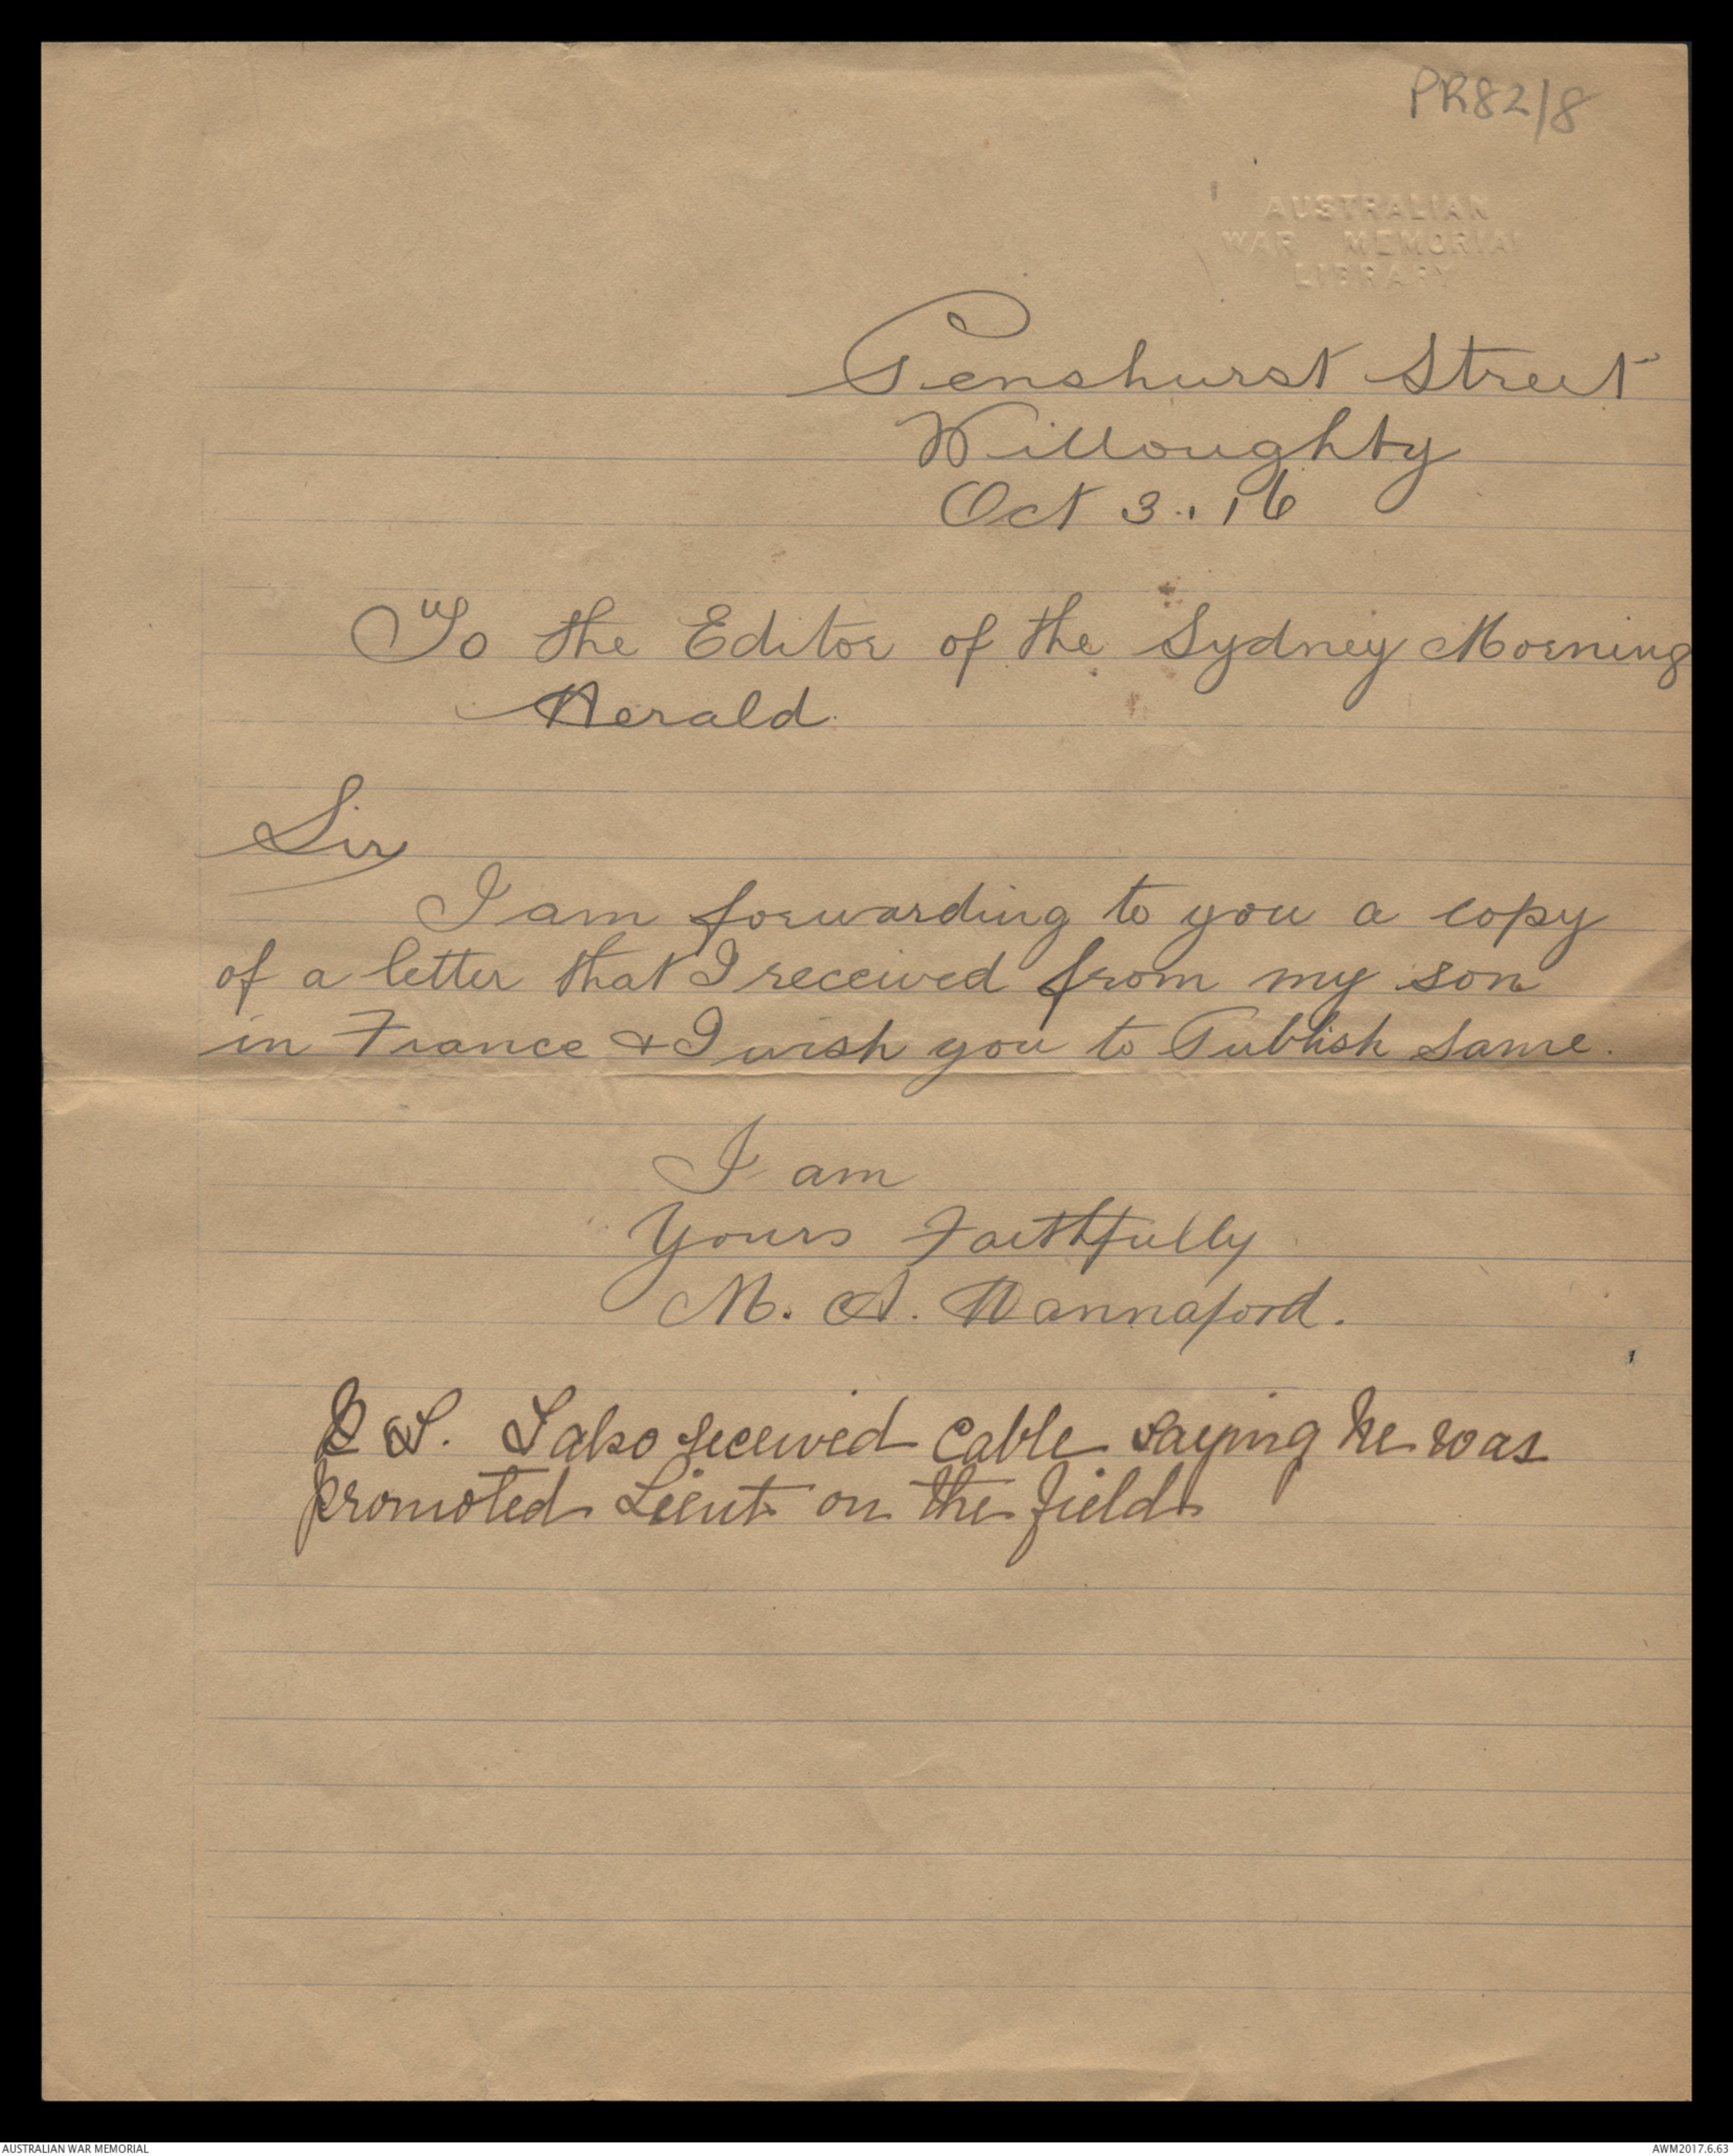 PR82/8
AUSTRALIAN
WAR MEMORIAL
LIBRARY
Penshurst Street
Willoughby
Oct 3..16
To the Editor of the Sydney Morning
Herald.
Sir
I am forwarding to you a copy
of a letter that I received from my son
in France & I wish you to Publish same.
I am
Yours Faithfully
M. A. Hannaford.
P S. I also received cable saying he was
promoted Lieut on the field
AUSTRALIAN WAR MEMORIAL
AWM2017.6.63